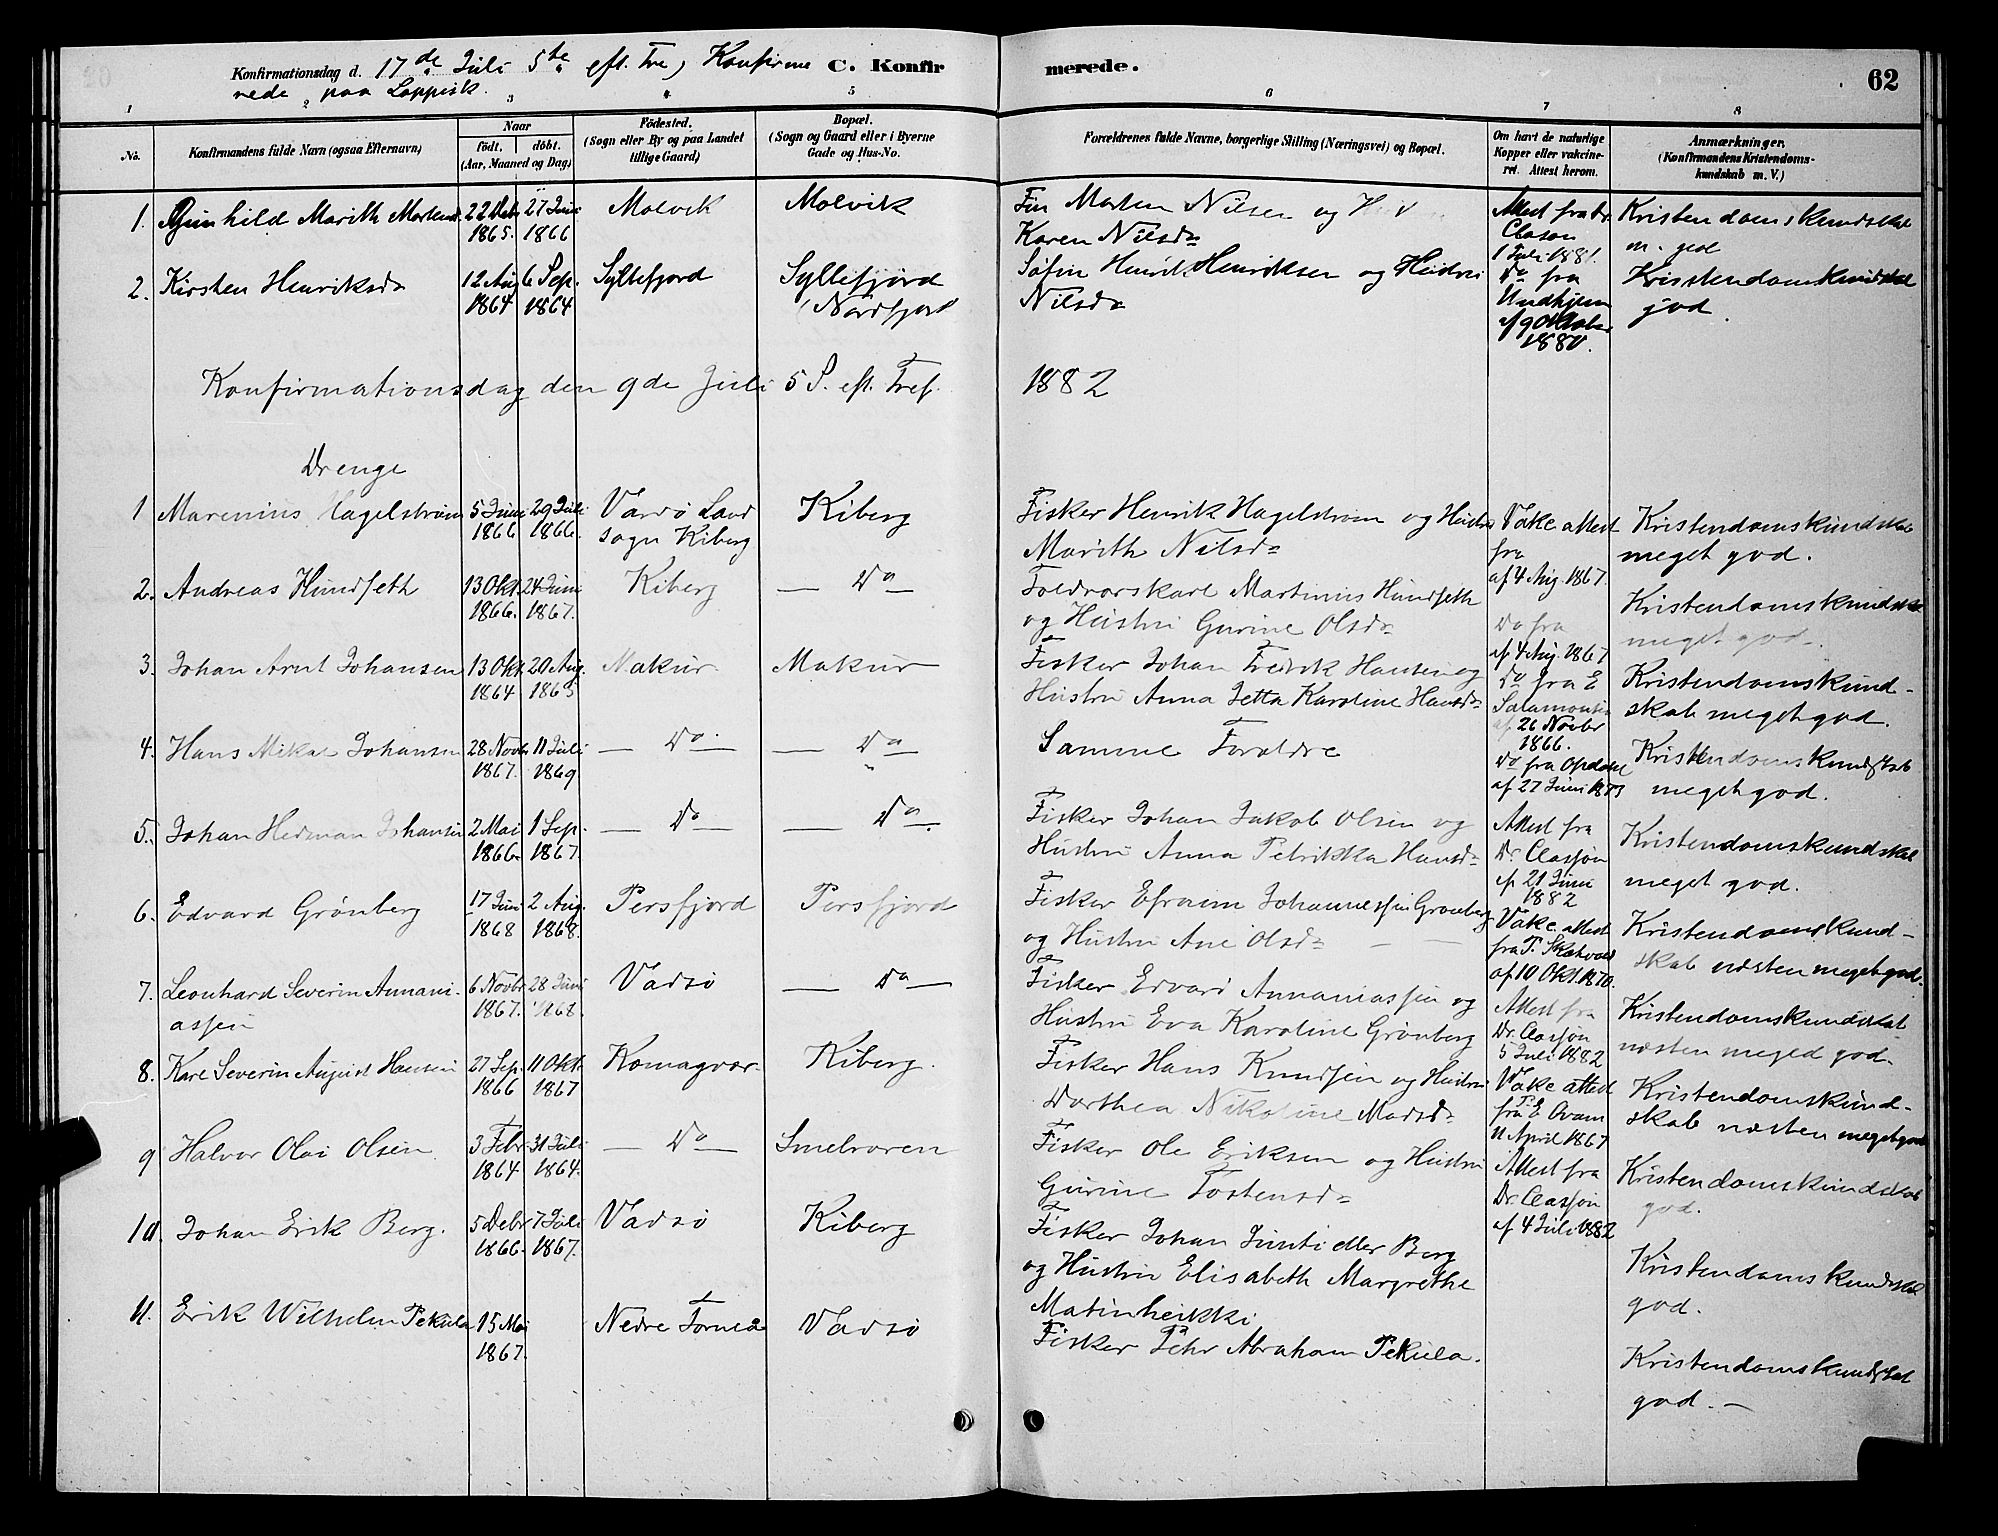 Konfirmationsdag d. 17de Juli 5te eft. Tref Konfirme C. Konfir merede. 62
rede paa Lappisk.
1 3 4 5 6 7 8
No. Konfirmandens fulde Navn (ogsaa Efternavn) Naar födt. döbt. (Aar, Maaned og Dag) Födested. (Sogn eller By og paa Landet tillige Gaard) Bopæl. (Sogn og Gaard eller i Byerne Gade og Hus-No. Forældrenes fulde Navne, borgerlige Stilling (Næringsvei) og Bopæl. Om havt de naturlige Kopper eller vakcineret. Attest herom. Anmærkninger. (Konfirmandens Kristendomskundskab m. V.)
1. Gunhild Marith Mortensd 22 Debr 1865. 27 Juni 1866 Molvik Molvik Fin Morten Nilsen og
Karen Nilsdr Attest fra Dr. Clason 1 Juli 1881. Kristendomskundskab m. god
2. Kirsten Henriksdr 12 Aug 1864 6 Sep. 1864 Syltefjord Syltefjord Nordfjord Søfin Henrik Henriksen og Hustru
Nilsdr Do fra af 9 Oktober 1880. Kristendomskundskab god
Konfirmationsdag den 9de Juli 5 S. eft. Tref. 1882
Drenge
1 Marenius Hagelstrøm 5 Juni 1866 29 Juli 1866. Vardø Land sogn Kiberg Kiberg Fisker Henrik Hagelstrøm og Hustru
Marith Nilsdr Vakc attest fra af 4 Aug. 1867. Kristendomskundskab meget god.
2. Andreas Hundseth 13 Okt. 1866. 24 Juni 1867. Kiberg — Do Toldrorskarl Martinus Hundseth
og Hustru Gurine Olsdr Do fra af 4 Aug. 1867 Kristendomskundskab meget god.
3. Johan Arnt Johansen 13 Okt. 1864 20 Aug. 1865 Makur Makur Fisker Johan Fredrik Hansen og
Hustru Anna Jetta Karoline Hansdr Do fra E Salamonsen af 26 Novbr 1866. Kristendomskundskab meget god.
4. Hans Mikal Johansen 28 Novbr 1867. 11 Juli 1869. — Do — — Do — Samme Forældre Do fra Opdahl af 27 Juni 1873 Kristendomskundskab meget god.
5. Johan Herman Johansen 2 Mai 1866. 1 Sep. 1867. — Do — — Do — Fisker Johan Jakob Olsen og
Hustru Anna Petrikka Hansdr Attest fra Dr. Classon af 21 Juni 1882 Kristendomskundskab meget god.
6. Edvard Grönberg 17 Juni 1868 2 Aug. 1868. Persfjord Persfjord Fisker Efraim Johannessen Grönberg
og Hustru Ane Olsdr — — Vakc. attest fra P. Skekvold af 10 Okt. 1870. Kristendomskundskab næsten meget god.
7. Leonhard Severin Annaniassen 6 Novbr 1867. 28 Juni 1868. Vadsö — Do — Fisker Edvard Annaniassen og
Hustru Eva Karoline Grönberg Attest fra Dr. Classon 5 Juli 1882 Kristendomskundskab næsten meged god.
8. Karl Severin August Hansen 27 Sep. 1866 11 Okt. 1867 Komagvær Kiberg. Fisker Hans Knudsen og Hustru
Dorthea Nikoline Madsdr Vakc attest fra P. E Qvam 11 April 1867 Kristendomskundskab næsten meget god
9 Halvor Olai Olsen 3 Febr. 1864 31 Juli 1864. — Do — Smelroren Fisker Ole Eriksen og Hustru
Gurine Tostensdr Attest fra Dr. Classon af 4 Juli 1882 Kristendomskundskab god.
10. Johan Erik Berg. 5 Debr 1866. 7 Juli 1867. Vadsö Kiberg Fisker Johan Junti eller Berg
og Hustru Elisabeth Margrethe
Matinheikki Kristendomskundskab god.
11. Erik Wilhelm Pekula 15 Mai 1867. Nedre Torneå Vadsö Fisker Pehr Abraham Pekula. Kristendomskundskab god. —